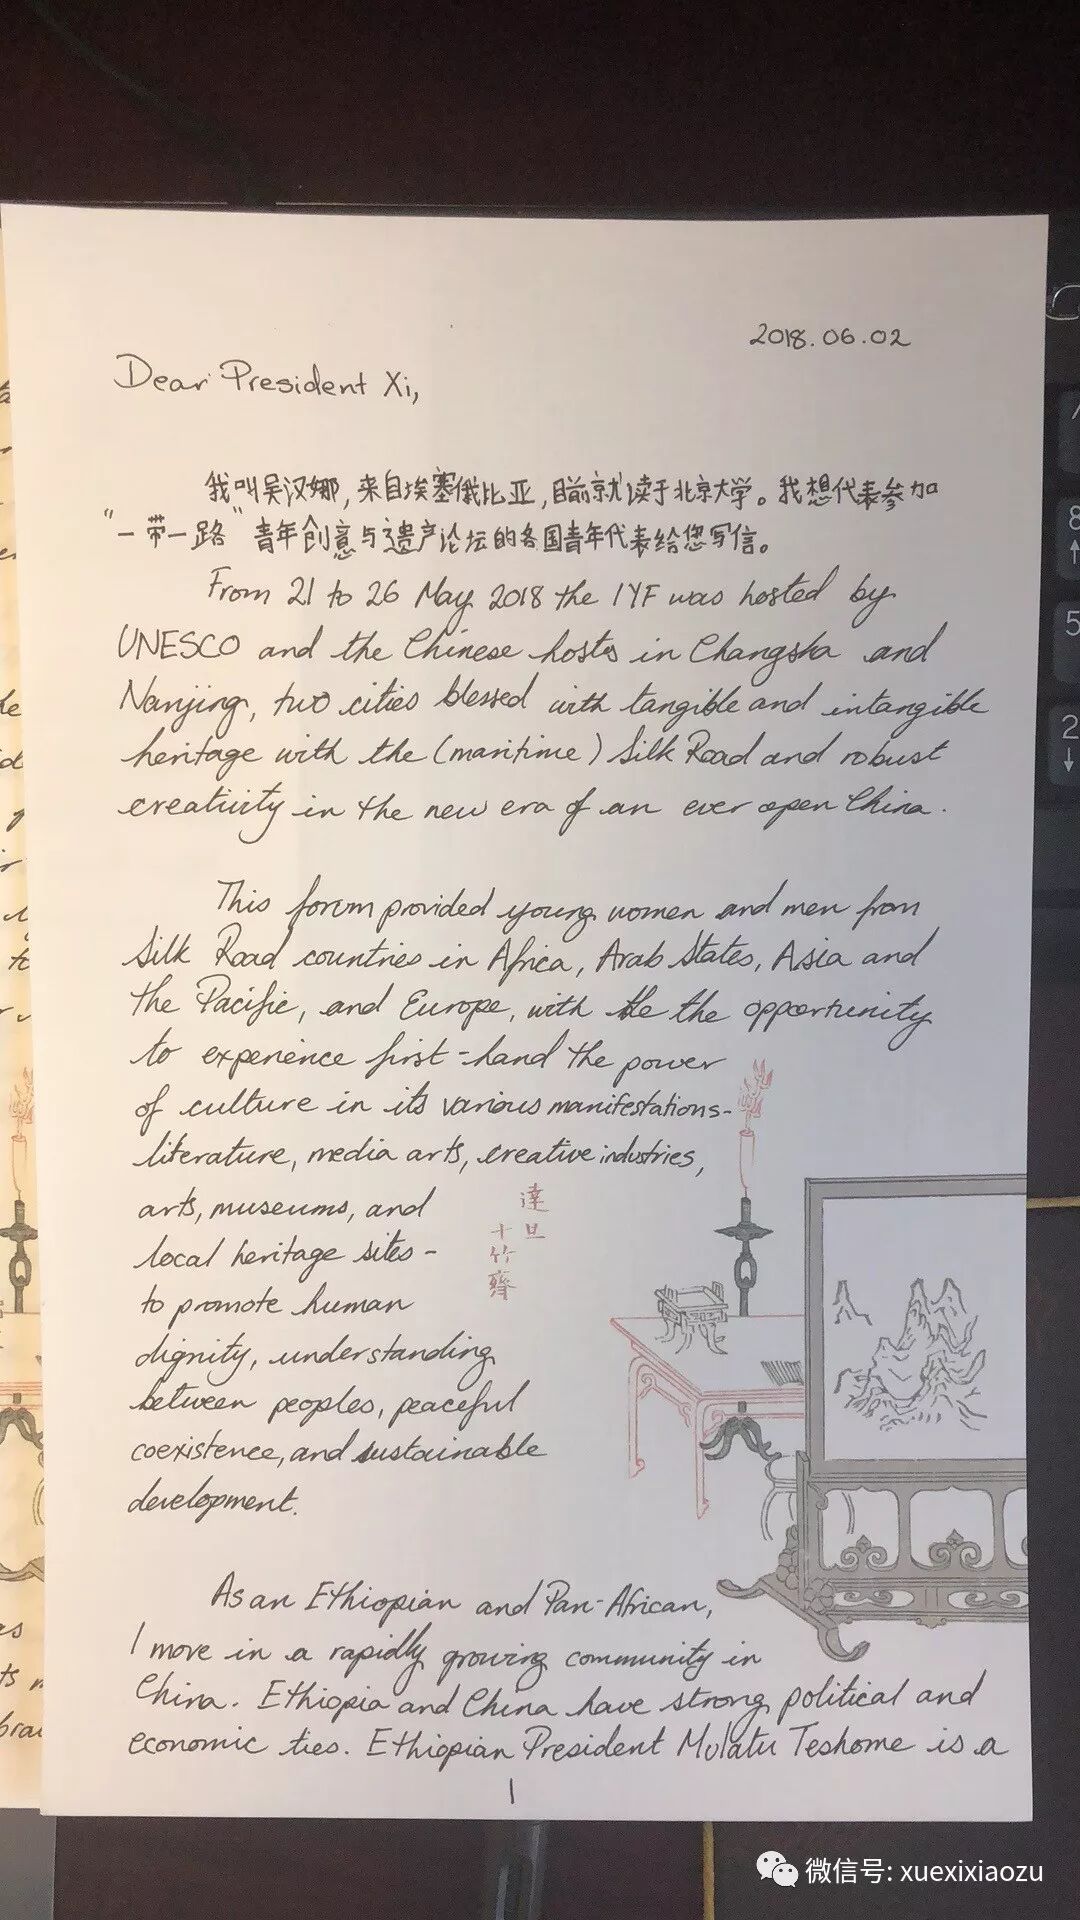 2018.06.02
Dear President Xi,
我叫吴汉娜，来自埃塞俄比亚，目前就读于北京大学。我想代表参加
“一带一路”青年创意与遗产论坛的各国青年代表给您写信。
From 21 to 26 May 2018 the IYF was hosted by
UNESCO and the Chinese hosts in Changsha and
Nanjing, two cities blessed with tangible and intangible
heritage with the (maritime) Silk Road and robust
creativity in the new era of an ever open China.
This forum provided young women and men from
Silk Road countries in Africa, Arab States, Asia and
the Pacific, and Europe, with the the opportunity
to experience first-hand the power
of culture in its various manifestations-
literature, media arts, creative industries,
arts, museums, and
local heritage sites -
to promote human
dignity, understanding
between peoples, peaceful
coexistence, and sustainable
development.
達旦
十竹齋
As an Ethiopian and Pan-African,
I move in a rapidly growing community in
China. Ethiopia and China have strong political and
economic ties. Ethiopian President Mulatu Teshome is a
1
微信号: xuexixiaozu